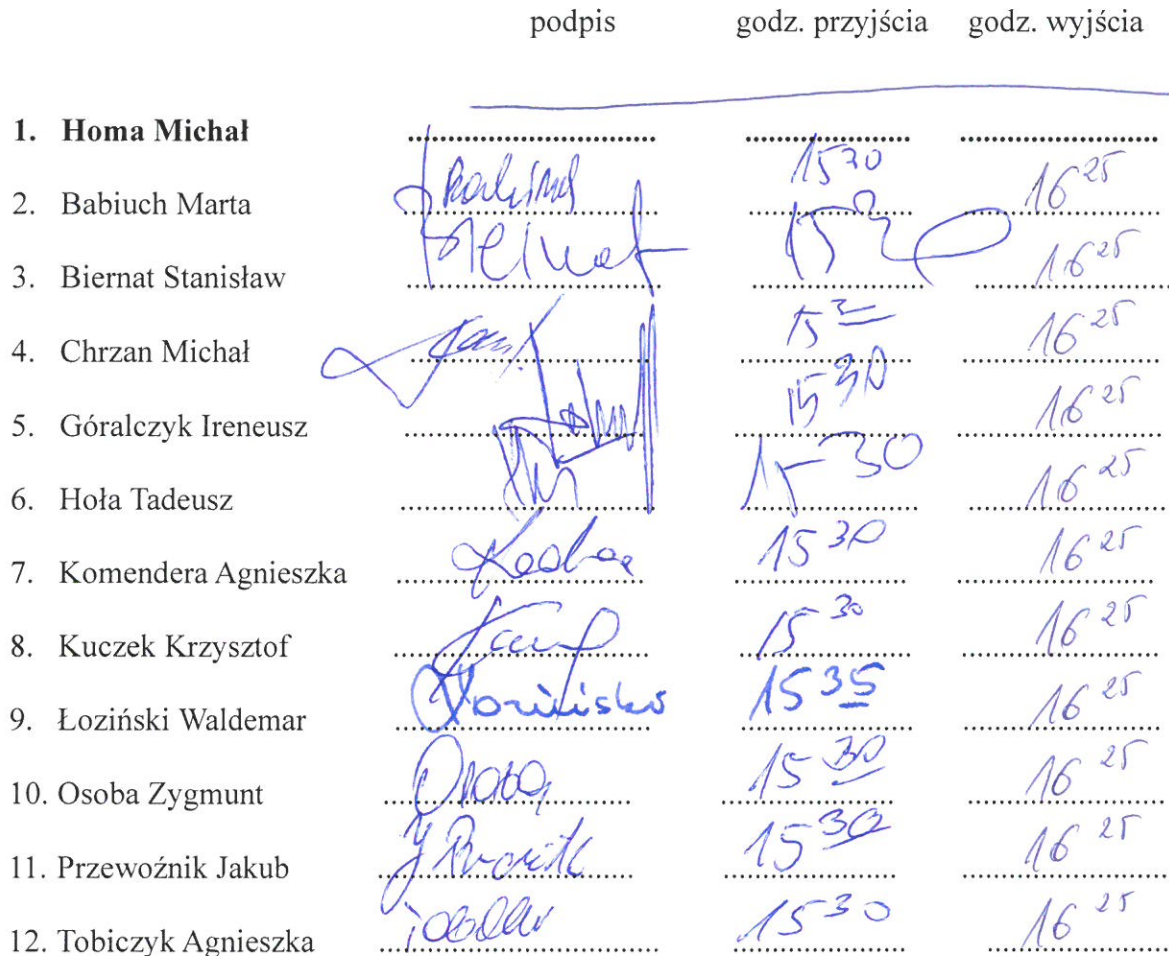 podpis godz. przyjścia godz. wyjścia
1. Homa Michał
2. Babiuch Marta 15 30 16 25
3. Biernat Stanisław Biernat 15 30 16 25
4. Chrzan Michał 15 16 25
5. Góralczyk Ireneusz 15 30 16 25
6. Hoła Tadeusz 15 30 16 25
7. Komendera Agnieszka 15 30 16 25
8. Kuczek Krzysztof 15 30 16 25
9. Łoziński Waldemar 15 35 16 25
10. Osoba Zygmunt Osoba 15 30 16 25
11. Przewoźnik Jakub 15 30 16 25
12. Tobiczyk Agnieszka 15 30 16 25